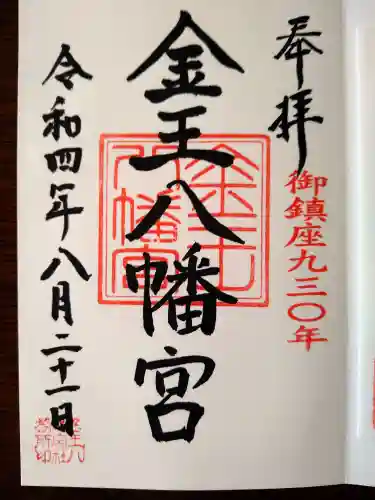 奉拝
御鎮座九三〇年
金王八幡宮
金王八幡宮
令和四年八月二十一日